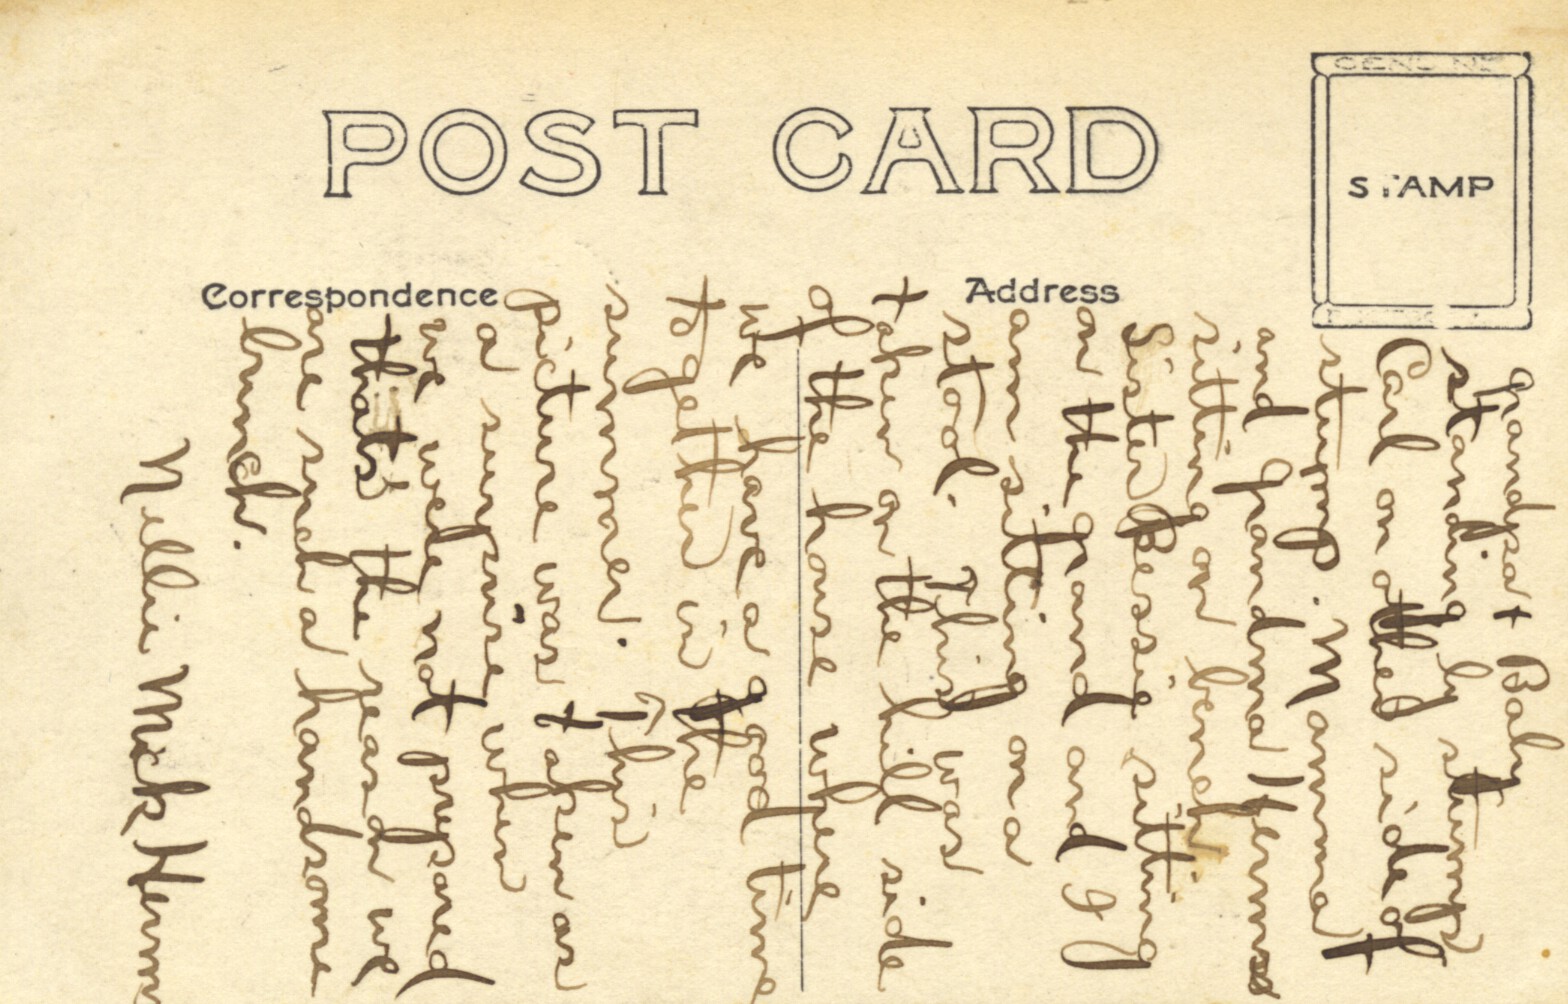 POST CARD
Correspondence
Address
GENUINE
STAMP
Grandpa + Baby
standing by stump
Carl on other side of
stump. Mamma +
and Grandma Hermes
sitting on bench.
Sister Bessie sitting
on the ground and I
am sitting on a
stool. This was
taken on the hill side
of the house where
we have a good time
together in the
summer. This
picture was taken as
a surprise when
we were not prepared
that's the reason we
are such a handsome
bunch.
Nellie Mick